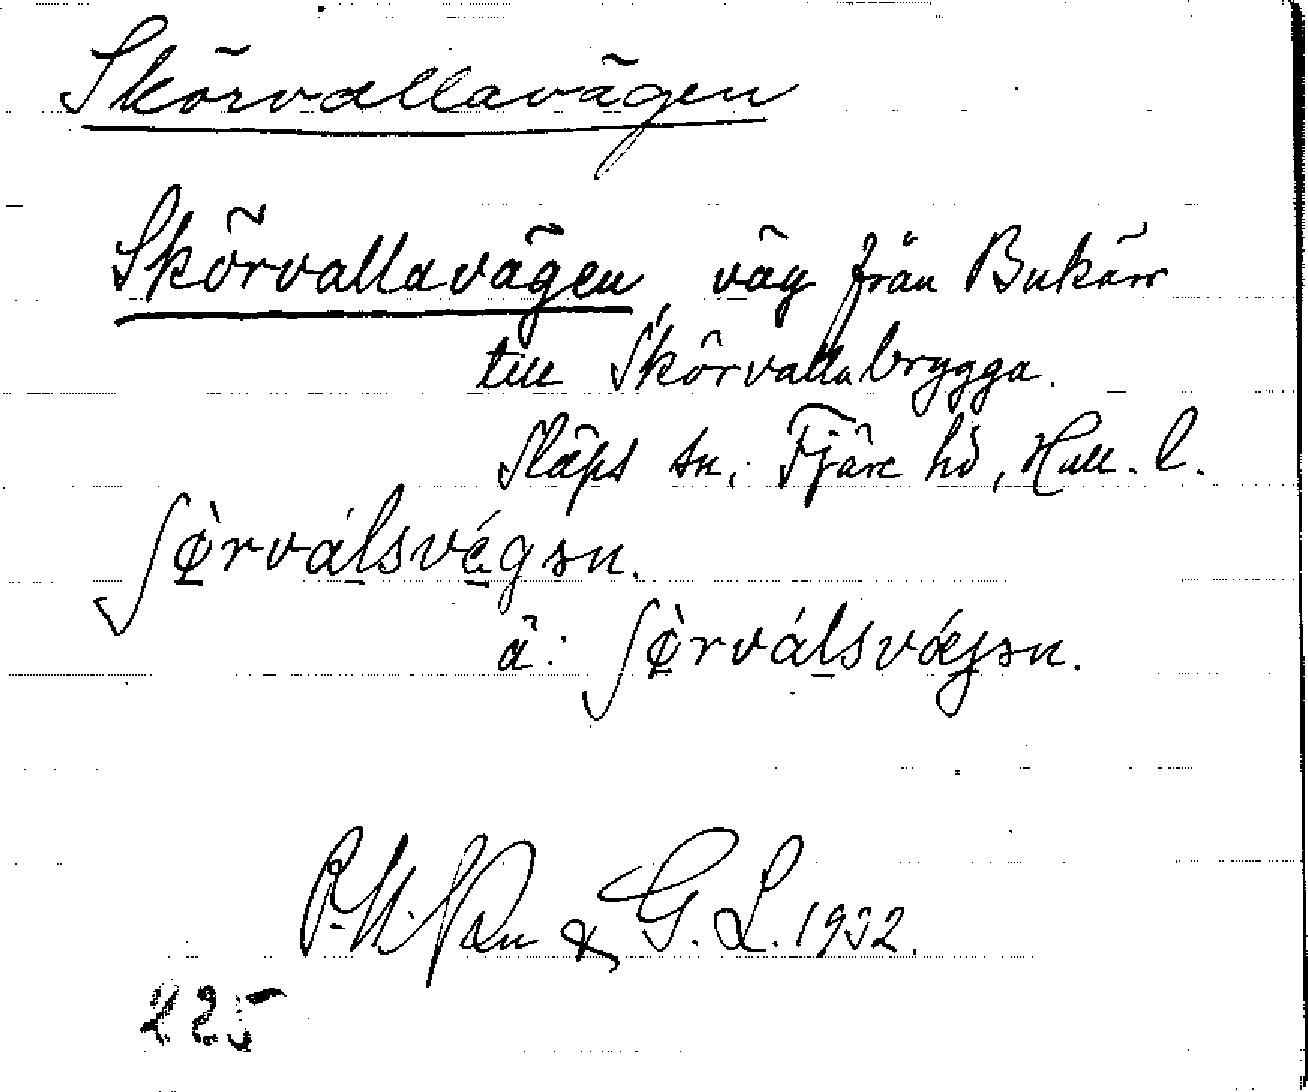 Skörvallavägen
Skörvallavägen, väg från Bukärr
till Skörvallabrygga.
Släps sn, Fjäre hd, Hall. l.
ʃø̀rválsvǽgən.
ä: ʃø̀rválsvǽjən.
& G. L. 1932.
225